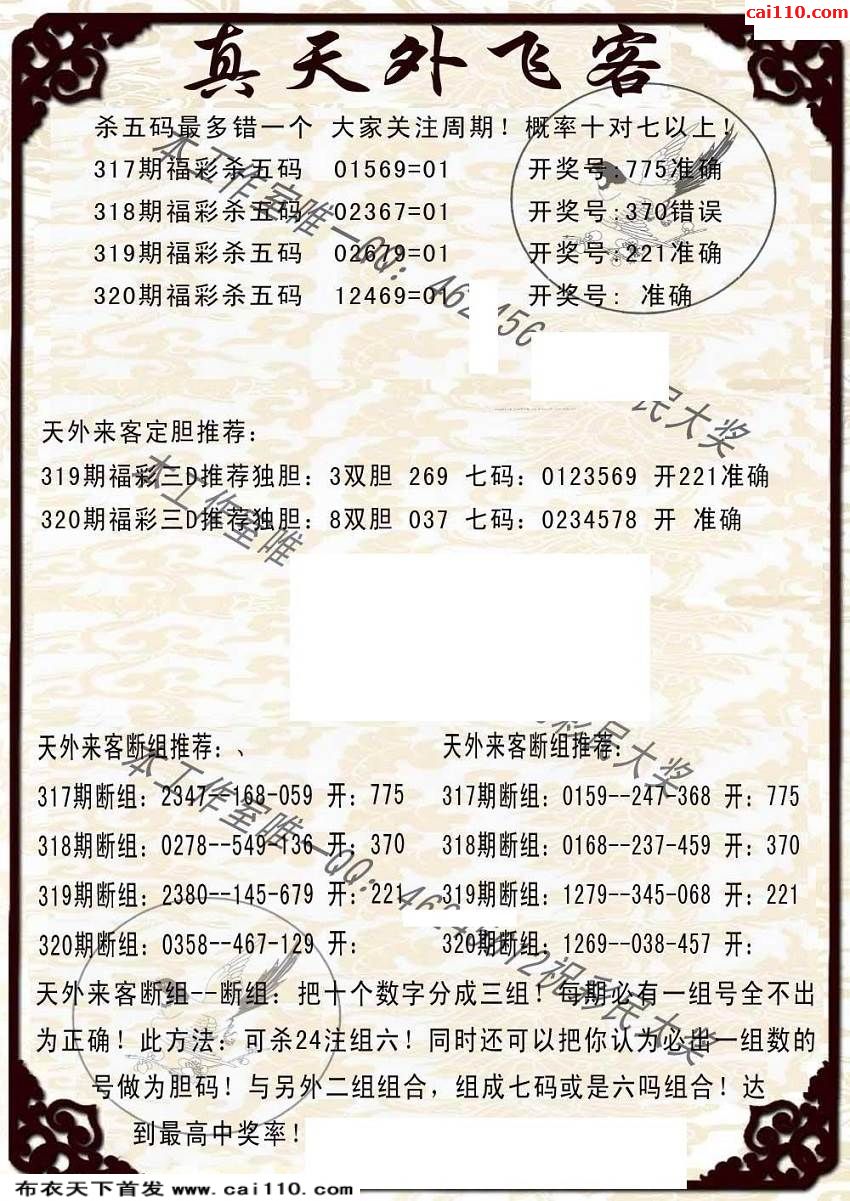 cai110.com
真天外飞客
杀五码最多错一个 大家关注周期！概率十对七以上！
317期福彩杀五码 01569=01 开奖号:775准确
318期福彩杀五码 02367=01 开奖号:370错误
319期福彩杀五码 02679=01 开奖号:221准确
320期福彩杀五码 12469=01 开奖号: 准确
天外来客定胆推荐：
319期福彩三D推荐独胆：3双胆 269 七码：0123569 开221准确
320期福彩三D推荐独胆：8双胆 037 七码：0234578 开 准确
天外来客断组推荐：、
317期断组：2347--168-059 开：775
318期断组：0278--549-136 开：370
319期断组：2380--145-679 开：221
320期断组：0358--467-129 开：
天外来客断组推荐：
317期断组：0159--247-368 开：775
318期断组：0168--237-459 开：370
319期断组：1279--345-068 开：221
320期断组：1269--038-457 开：
天外来客断组--断组：把十个数字分成三组！每期必有一组号全不出
为正确！此方法：可杀24注组六！同时还可以把你认为必出一组数的
号做为胆码！与另外二组组合，组成七码或是六吗组合！达
到最高中奖率！
本工作室唯一QQ：
民大奖
本工作室唯
彩民大奖
本工作室唯一QQ：
祝彩民大奖
布衣天下首发 www.cai110.com